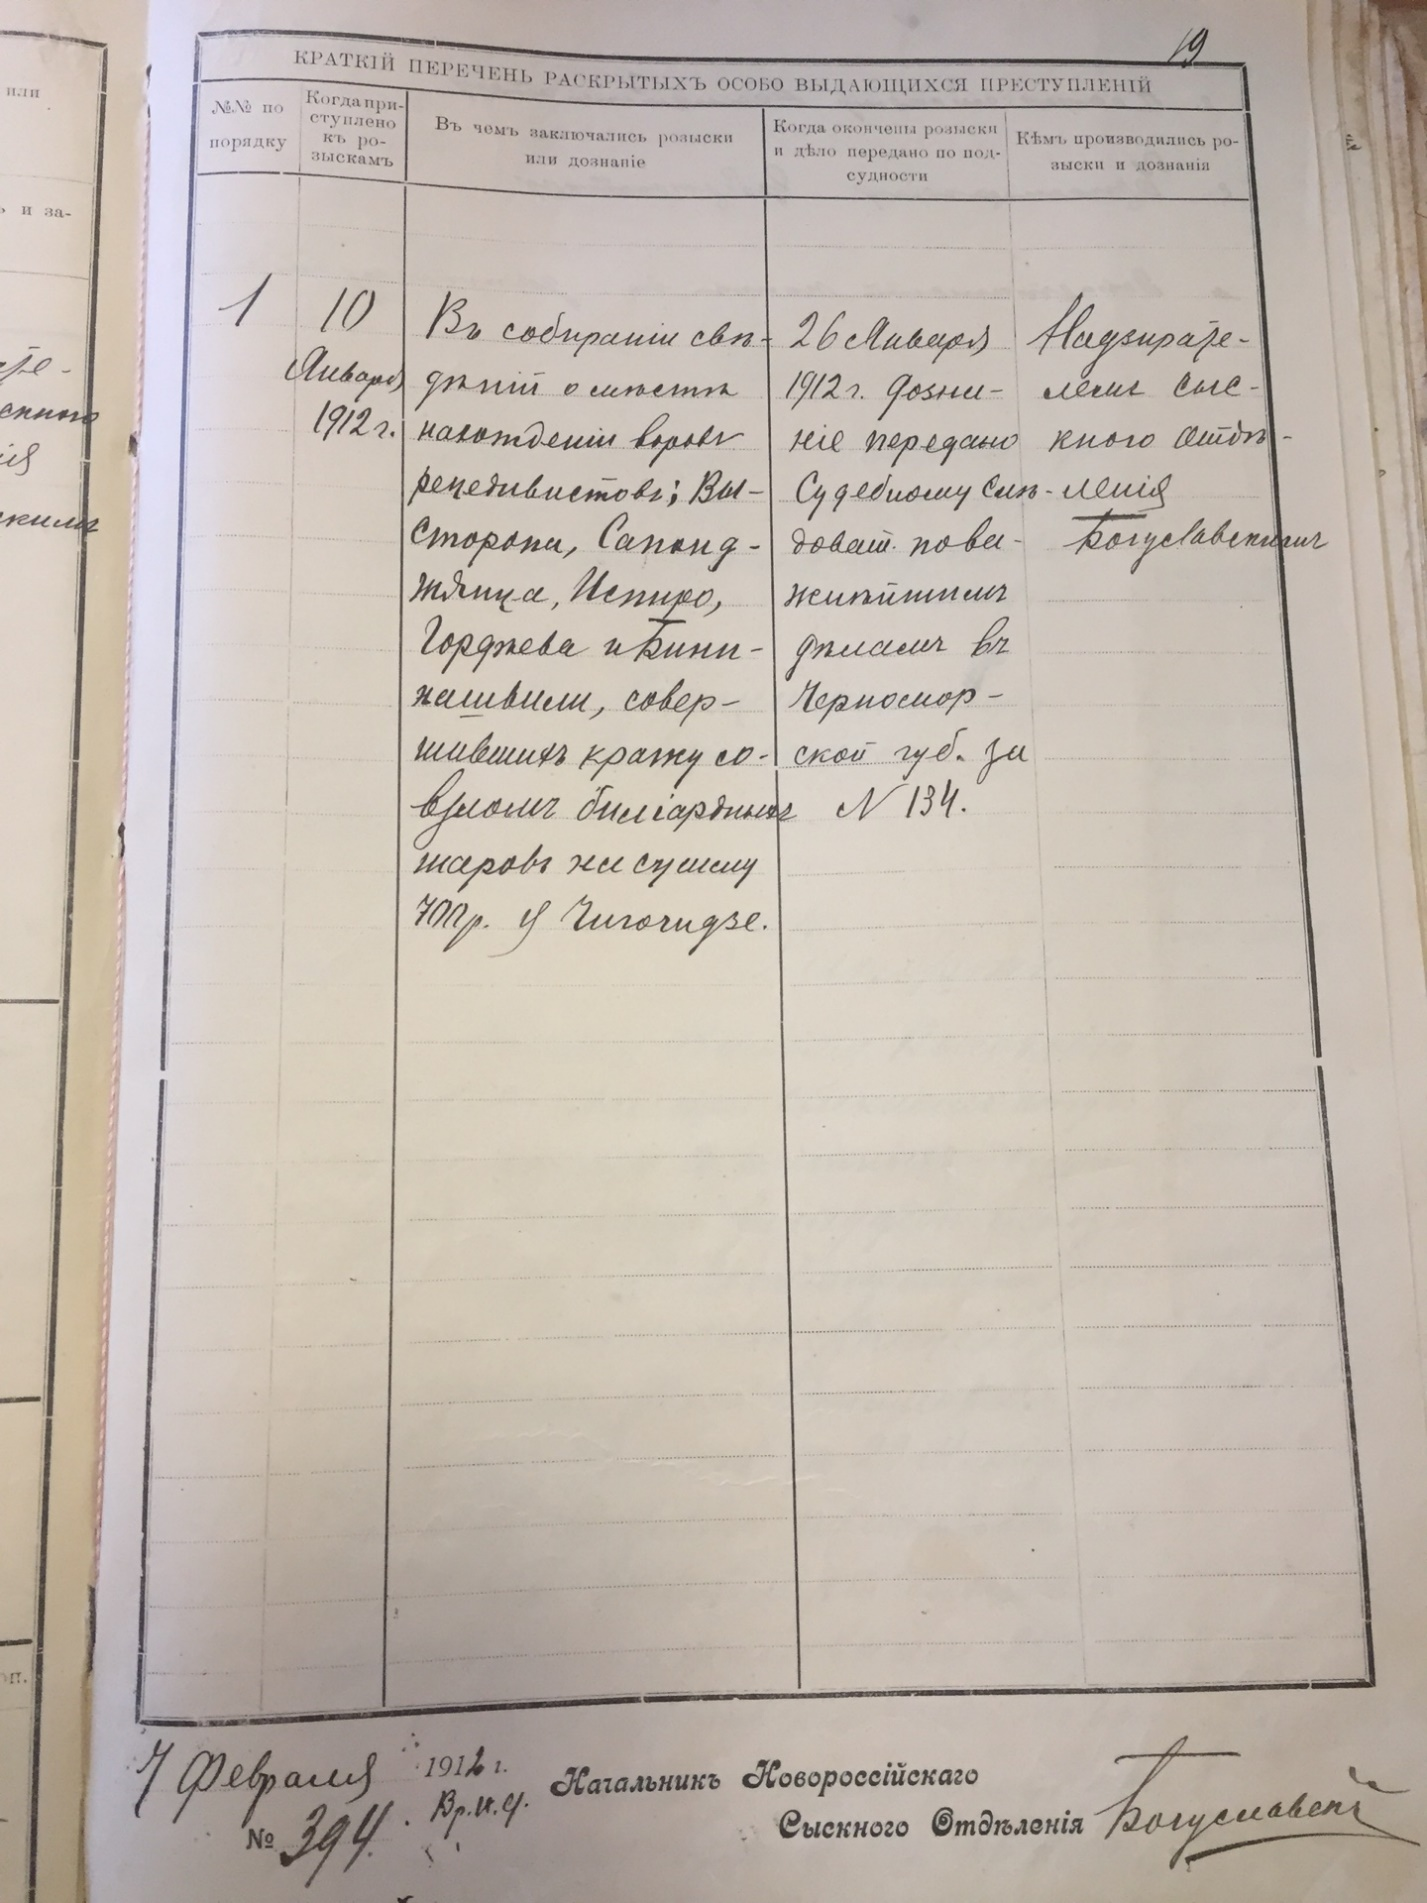 19
КРАТКІЙ ПЕРЕЧЕНЬ РАСКРЫТЫХЪ ОСОБО ВЫДАЮЩИХСЯ ПРЕСТУПЛЕНІЙ
№№ по
порядку
Когда при-
ступлено
къ ро-
зыскамъ
Въ чемъ заключались розыски
или дознаніе
Когда окончены розыски
и дѣло передано по под-
судности
Кѣмъ производились ро-
зыски и дознанія
1
10
Января
1912 г.
Въ собираніи свѣ-
дѣній о мѣстѣ
нахожденіи воровъ
рецедивистовъ; Вы-
Сторопи, Сапонд-
жянца, Испиро,
Горджева и Бини-
нашвили, совер-
шившихъ кражу со-
взломъ биліардныхъ
шаровъ на сумму
700 р. у Чигогидзе.
26 Января
1912 г. дозна-
ніе передано
Судебному Слѣ-
доват. по ва-
жнѣйшимъ
дѣламъ въ
Черномор-
ской губ. за
N 134.
Надзирате-
лемъ сыс-
кного отдѣ-
ленія
Богуславскимъ
или
ь и за-
те-
скного
ія
скимъ
оп.
7 Февраля 1912 г.
№ 394.
Вр. И. д.
Начальникъ Новороссійскаго
Сыскного Отдѣленія Богуславскій